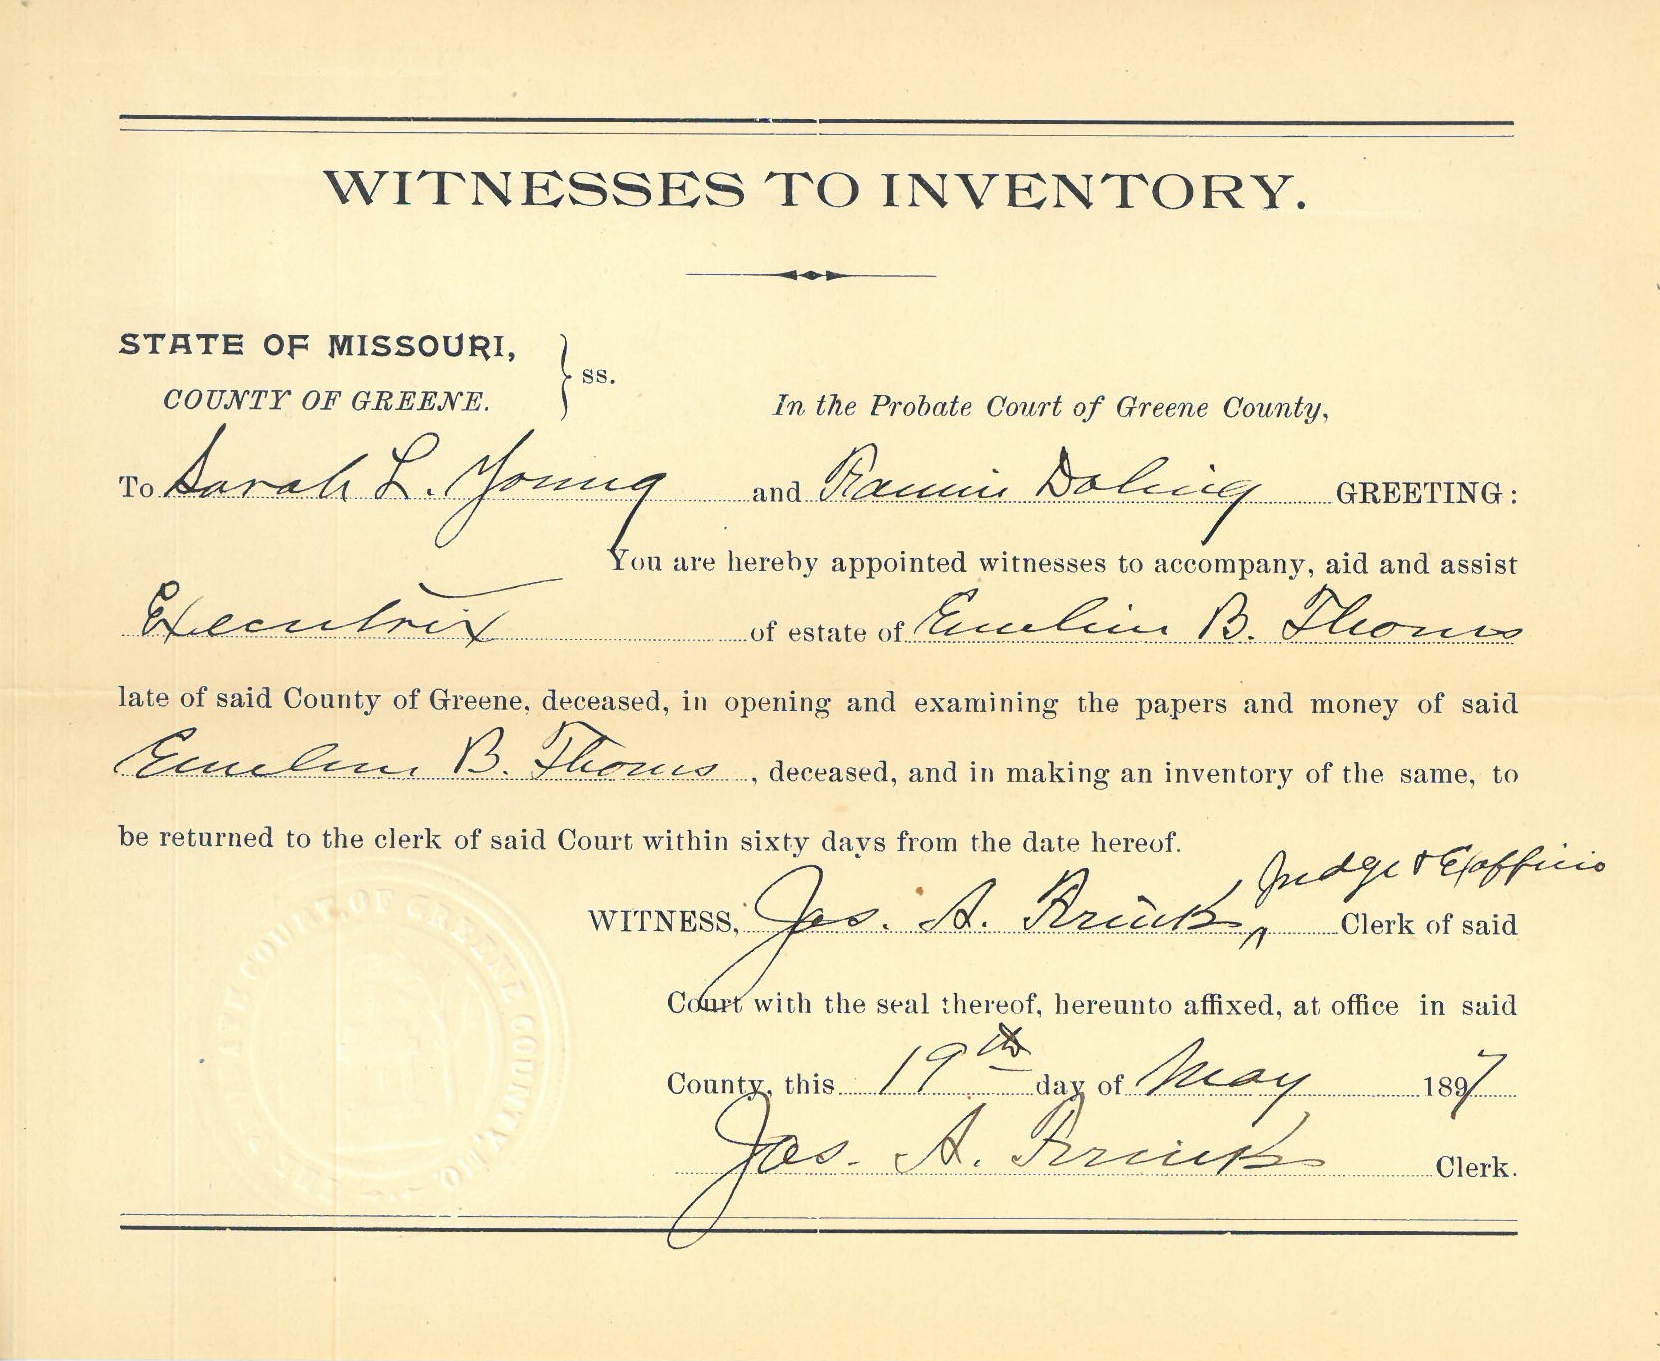 WITNESSES TO INVENTORY.
STATE OF MISSOURI,
COUNTY OF GREENE.
ss.
In the Probate Court of Greene County,
To Sarah L. Young and Doling GREETING:
You are hereby appointed witnesses to accompany, aid and assist
Executrix of estate of Emeline B. Thoms
late of said County of Greene, deceased, in opening and examining the papers and money of said
Emeline B. Thoms, deceased, and in making an inventory of the same, to
be returned to the clerk of said Court within sixty days from the date hereof.
Judge & Exofficio
WITNESS, Jas. A. Clerk of said
Court with the seal thereof, hereunto affixed, at office in said
County, this 19th day of May 1897
Jas. A. Clerk.
COURT OF GREENE COUNTY, MO